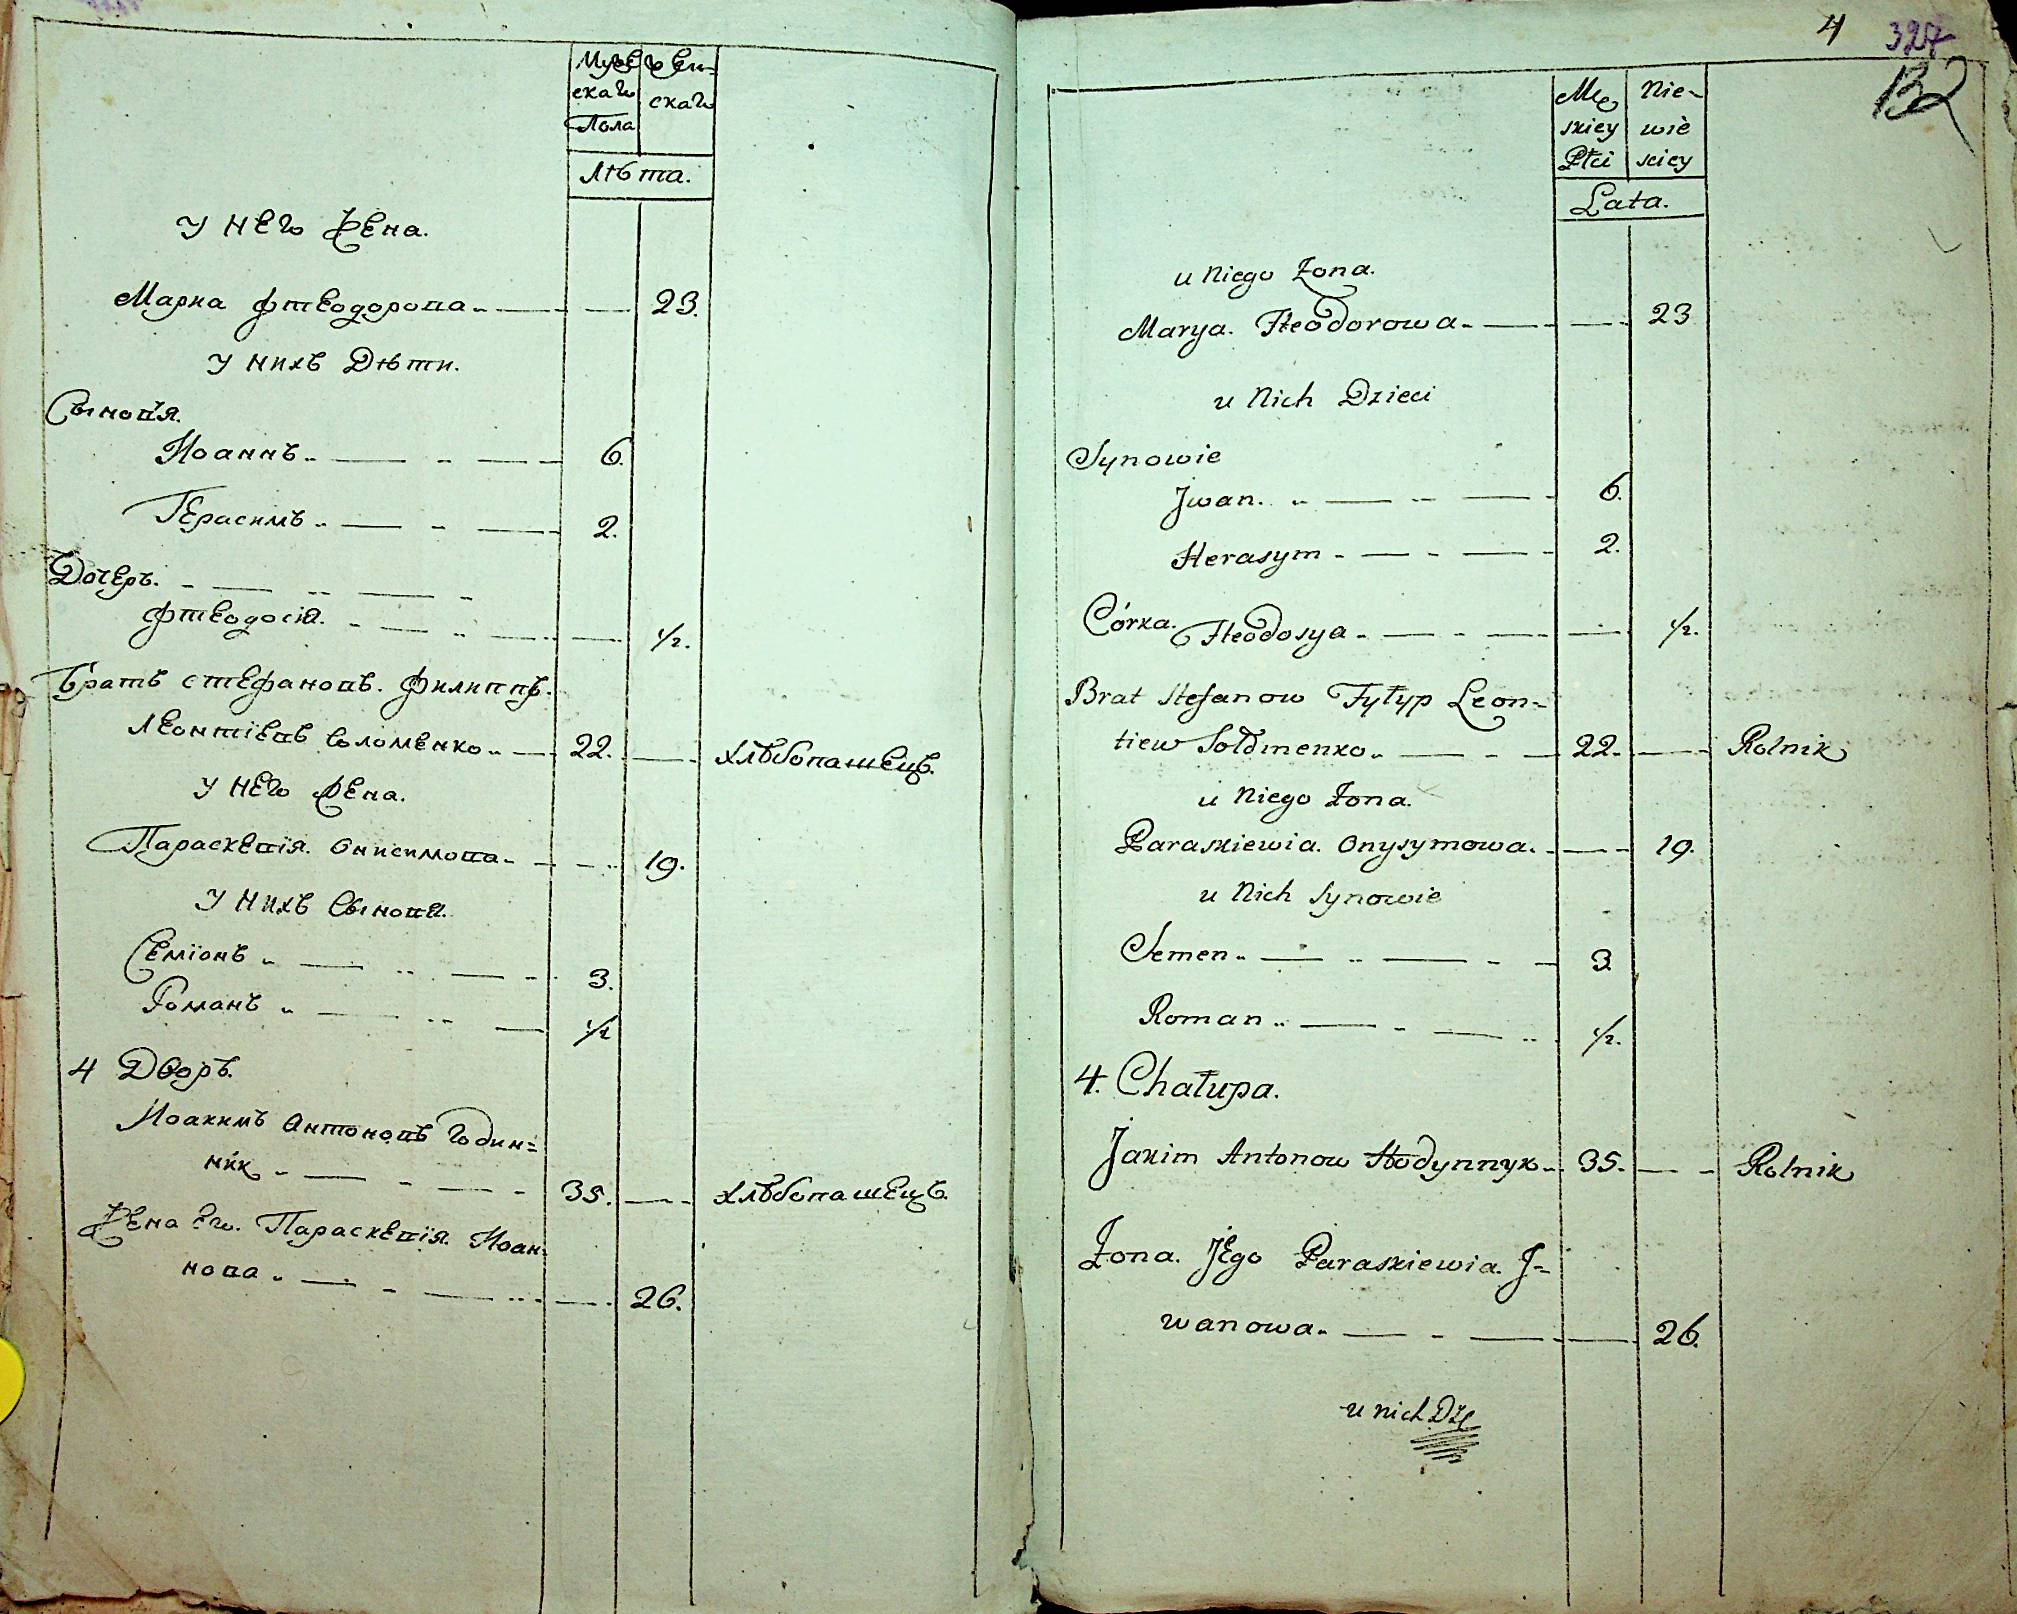 Мужескаго Пола
Женскаго
Лѣта.
У него Жена.
Мариа Фтеодорова 23.
У нихъ Дѣти.
Сыновя.
Иоаннъ 6.
Герасимъ 2.
Дочерь.
Фтеодосия. 1/2.
Братъ Стефановъ. Филиппъ.
Леонтіевъ Соломенко 22. Хлѣбопашецъ.
У него Жена.
Параскевія. Онисимова 19.
У нихъ Сыновя.
Семіонъ 3.
Романъ 1/2
4 Дворъ.
Иоакимъ Антоновъ Годин=
ник 35. Хлѣбопашецъ.
Жена Его. Параскевія Иоан-
нова 26.
4 327
132
Męskiey Płci
Niewieściey
Lata.
u Niego Żona.
Marya. Fteodorowa 23
u Nich Dzieci
Synowie
Jwan. 6.
Herasym 2.
Córka. Fteodosya 1/2.
Brat Stefanow Fyłyp Leon=
tiew Sołomenko 22. Rolnik
u Niego Żona.
Paraskiewia. Onysymowa. 19.
u Nich Synowie
Semen 3
Roman 1/2.
4. Chałupa.
Jakim Antonow Hodynnyk 35. Rolnik
Żona. Jego Paraskiewia. J=
wanowa. 26.
u nich Dze